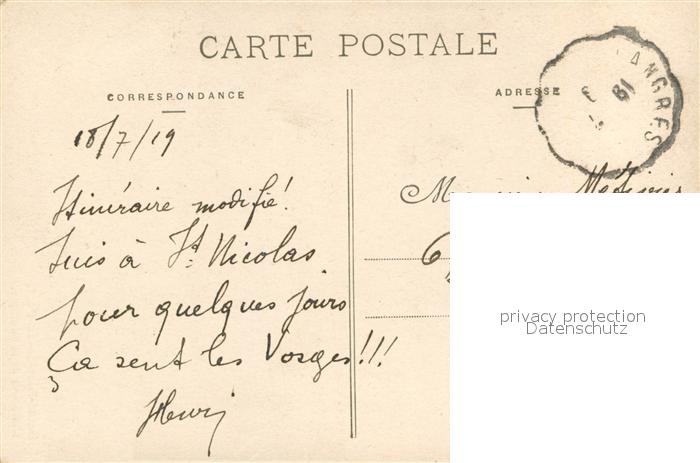 CARTE POSTALE
CORRESPONDANCE
ADRESSE
ANGRES
18/7/19
Itinéraire modifié!
Suis à St Nicolas
pour quelques jours
Ça sent les Vosges!!!
Henri
6
privacy protection
Datenschutz